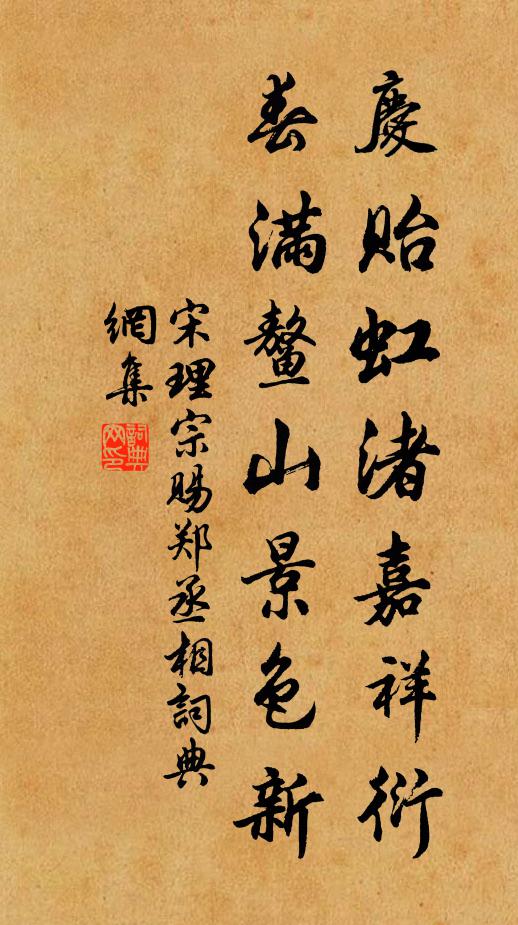 慶貽虹渚嘉祥衍
春滿鼇山景色新
宋理宗賜郑丞相詞典
網集
詞典
网印